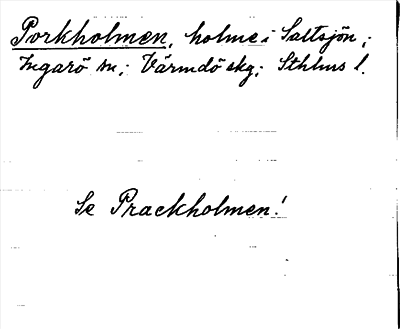 Porkholmen, holme i Saltsjön;
Ingarö sn; Värmdö skg; Sthlms l.
Se Prackholmen!